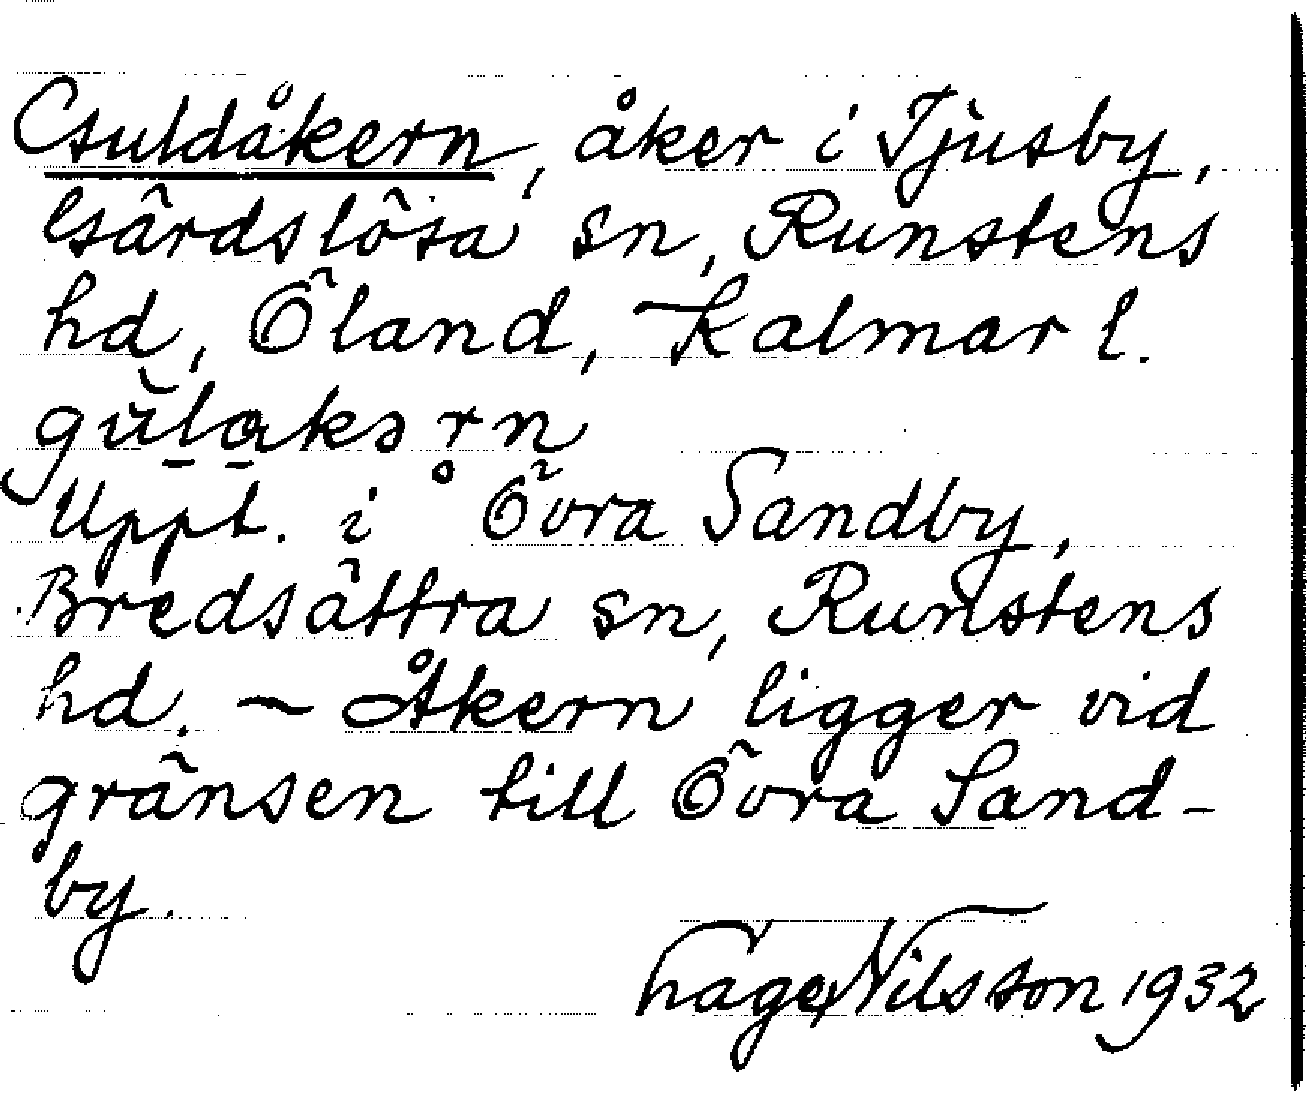 Guldåkern, åker i Tjusby,
Gärdslösa sn, Runstens
hd, Öland, Kalmar l.
Uppt. i Övra Sandby,
Bredsättra sn, Runstens
hd. – Åkern ligger vid
gränsen till Övra Sand-
by.
Hage Nilsson 1932